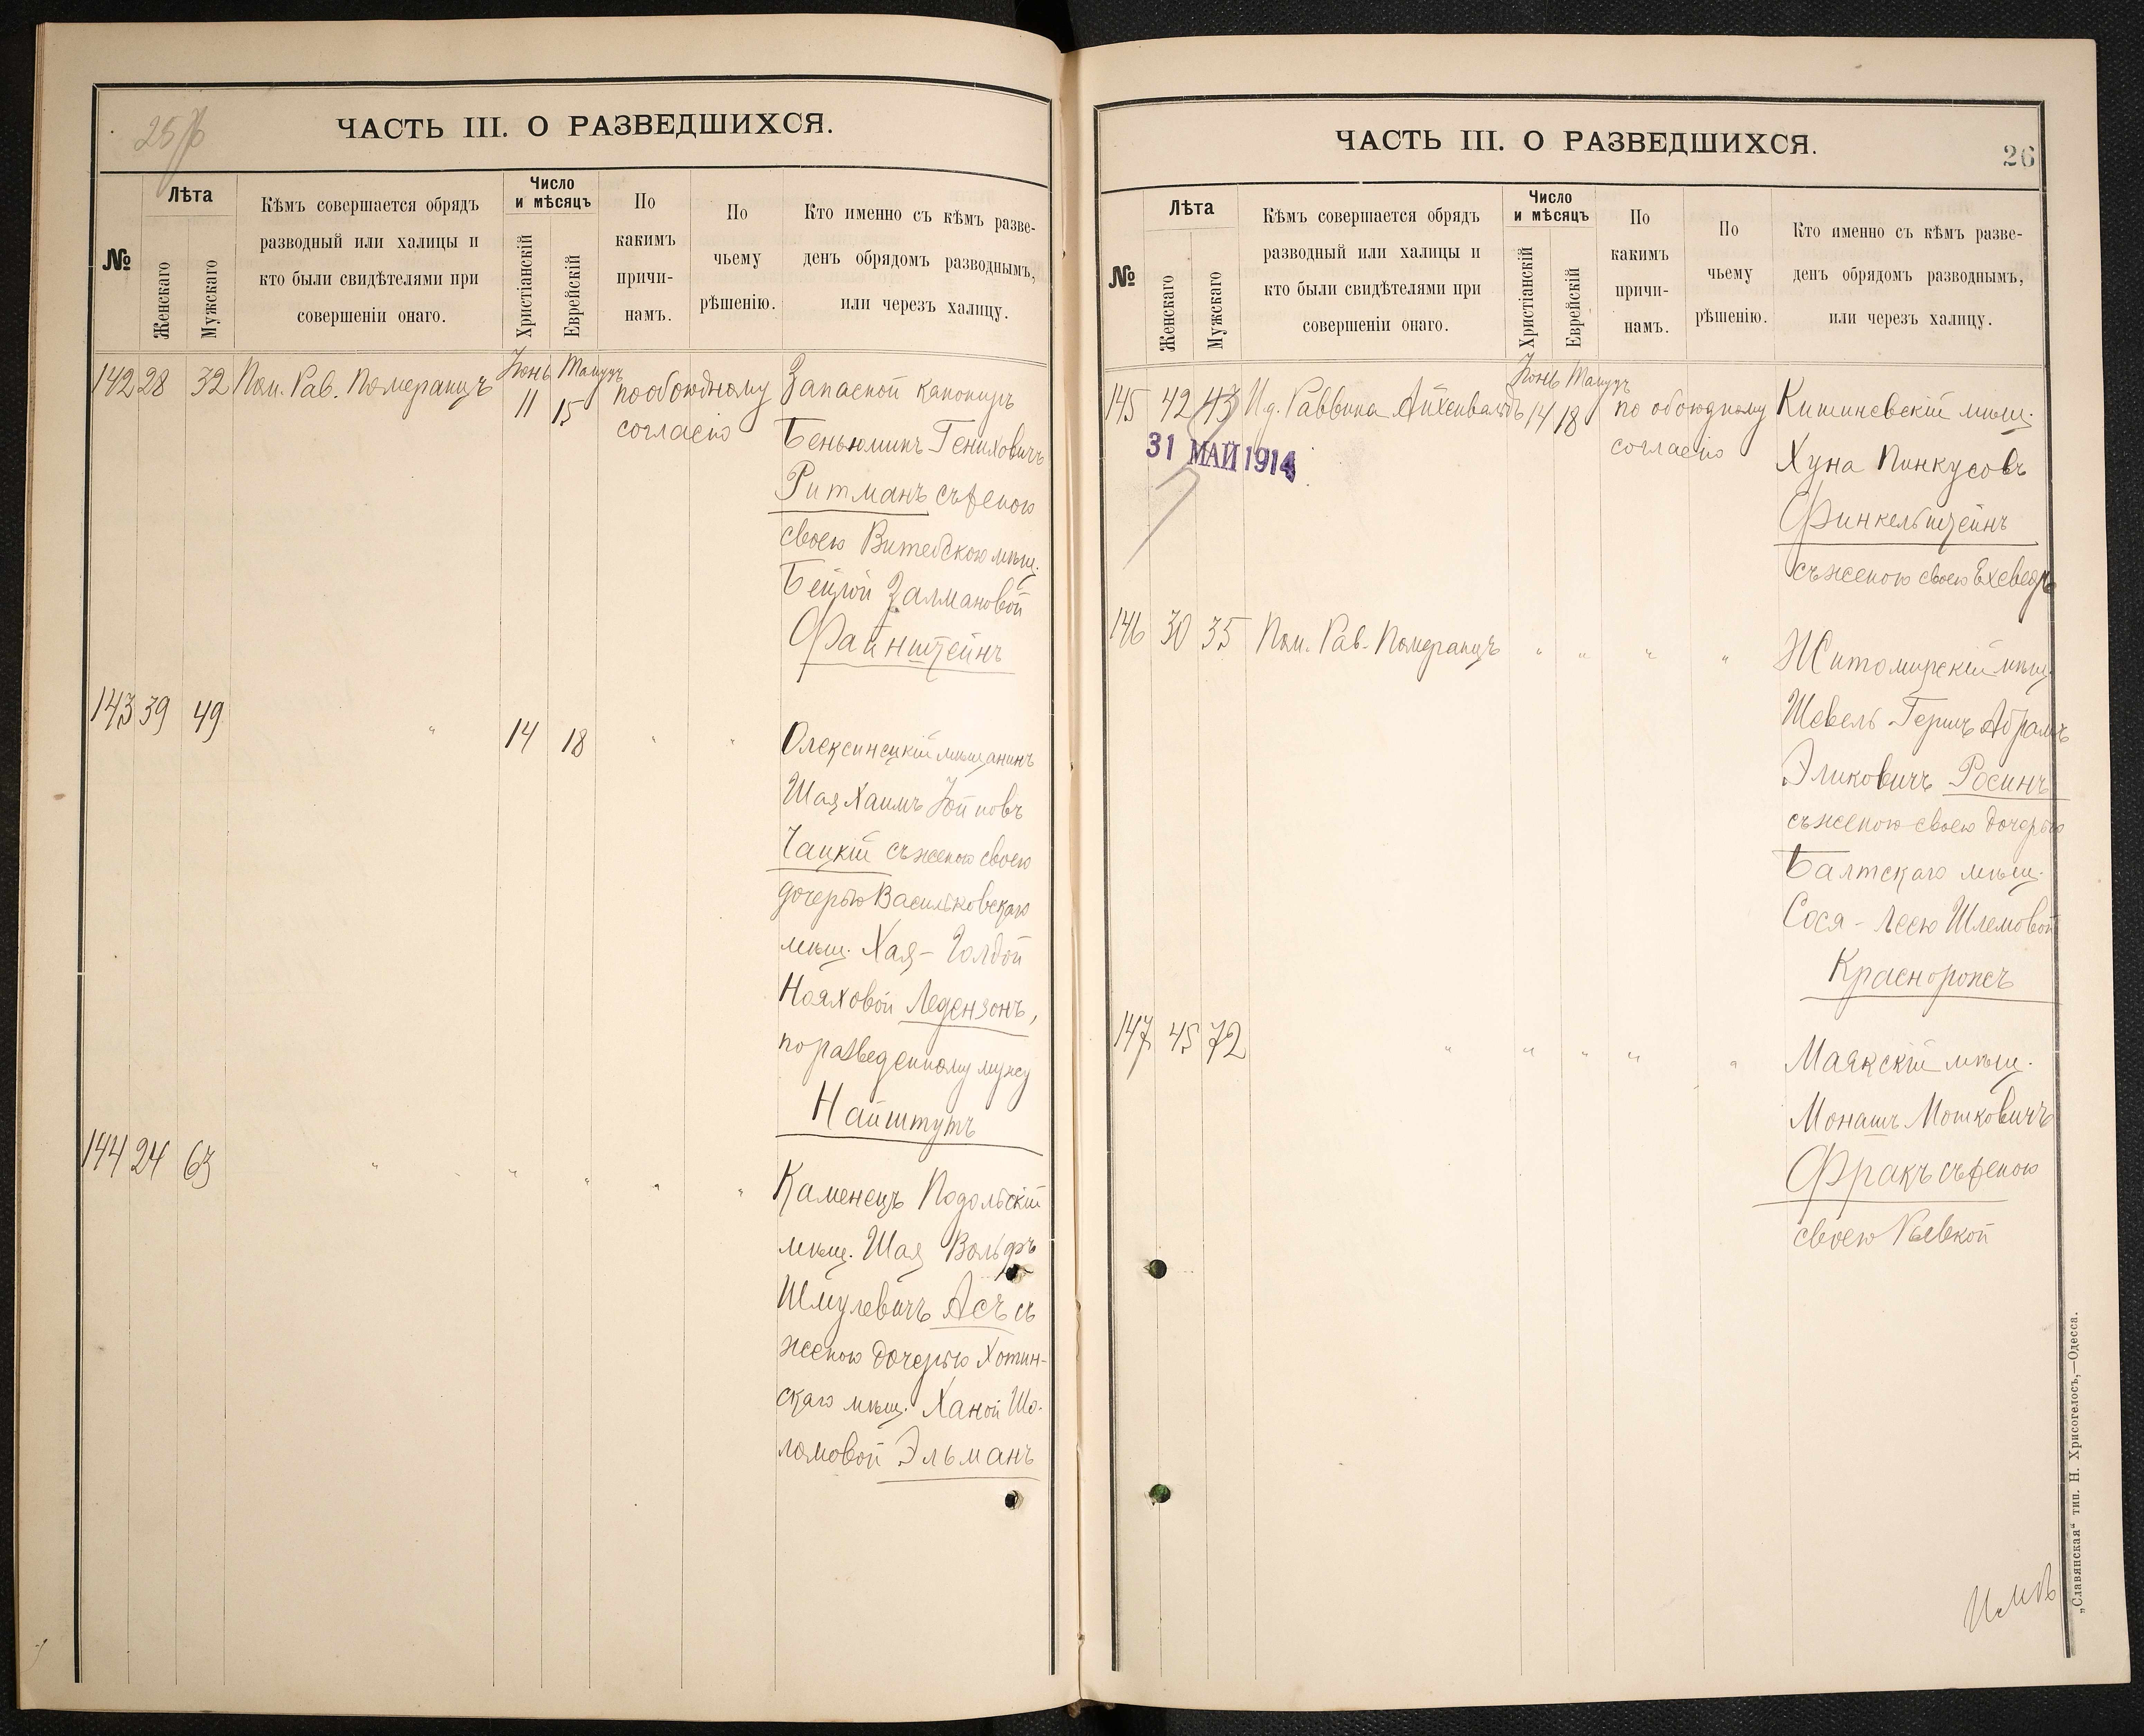 25/б
ЧАСТЬ III. О РАЗВЕДШИХСЯ.
№
Лѣта
Женскаго
Мужскаго
Кѣмъ совершается обрядъ
разводный или халицы и
кто были свидѣтелями при
совершеніи онаго.
Число
и мѣсяцъ
Христіанскій
Еврейскій
По
какимъ
причи-
намъ.
По
чьему
рѣшенію.
Кто именно съ кѣмъ разве-
денъ обрядомъ разводнымъ,
или черезъ халицу.
142 28 32 Пом. Рав. Померанцъ Іюнь 11 Тамузъ 15 по обоюдному Запасной канониръ
согласію Беньюминъ Гениховичъ
Ритманъ съ женою
своею Витебскою мѣщ.
Бейлой Залмановой
Файнштейнъ
143 39 49 " 14 18 " " Олексинецкій мѣщанинъ
Шая Хаимъ
Чацкій съ женою своею
дочерью Васильковскаго
мѣщ. Хая - Голдой
Нояховой Ледензонъ,
по разведенному мужу
Найштутъ
144 24 63 " " " " " Каменецъ Подольскій
мѣщ. Шая Вольфъ
Шмулевичъ Асъ съ
женою дочерью Хотин-
скаго мѣщ. Ханой Шо-
ломовой Эльманъ
ЧАСТЬ III. О РАЗВЕДШИХСЯ.
26
№
Лѣта
Женскаго
Мужскаго
Кѣмъ совершается обрядъ
разводный или халицы и
кто были свидѣтелями при
совершеніи онаго.
Число
и мѣсяцъ
Христіанскій
Еврейскій
По
какимъ
причи-
намъ.
По
чьему
рѣшенію.
Кто именно съ кѣмъ разве-
денъ обрядомъ разводнымъ,
или черезъ халицу.
145 42 43 И.д. Раввина Айхенвальдъ Іюнь 14 Тамузъ 18 по обоюдному Кишиневскій мѣщ.
31 МАЙ 1914
согласію Хуна Пинкусовъ
Финкельштейнъ
съ женою своею Ехеведъ
146 30 35 Пом. Рав. Померанцъ " " " " Житомирскій мѣщ.
Шевель-Гершъ Абрамъ
Эликовичъ Росинъ
съ женою своею дочерью
Балтскаго мѣщ.
Сося - Леею Шлемовой
147 45 72 " " " " " Маякскій мѣщ.
Монашъ Мошковичъ
Фракъ съ женою
своею Ривкой
„Славянская“ тип. Н. Хрисогелосъ,—Одесса.